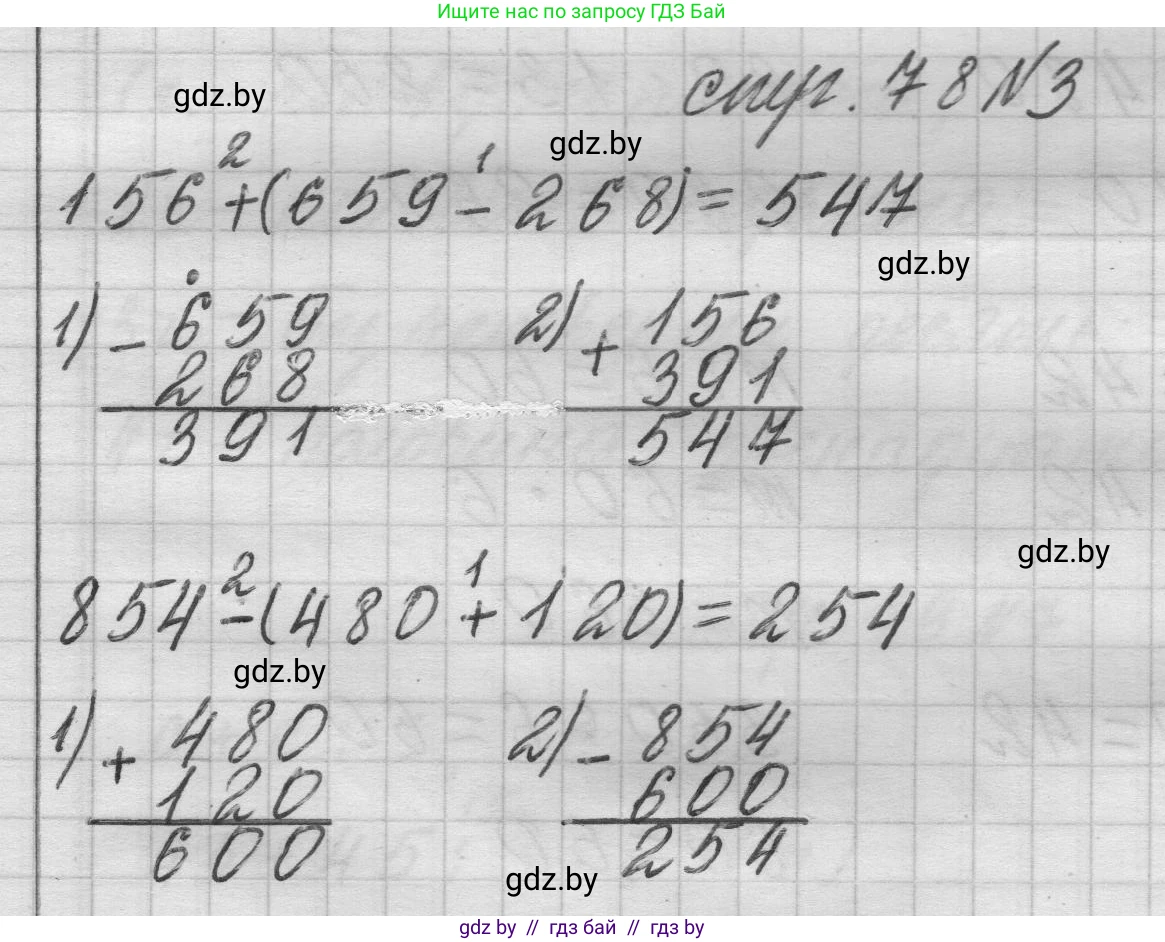 Ищите нас по запросу ГДЗ Бай
стр. 78 №3
gdz.by
gdz.by
2 1
156+(659-268)=547
gdz.by
1) - 659 2) + 156
268 391
391 547
gdz.by
2 1
854-(480+120)=254
gdz.by
1) + 480 2) - 854
120 600
600 254
gdz.by
gdz by // гдз бай // гдз by